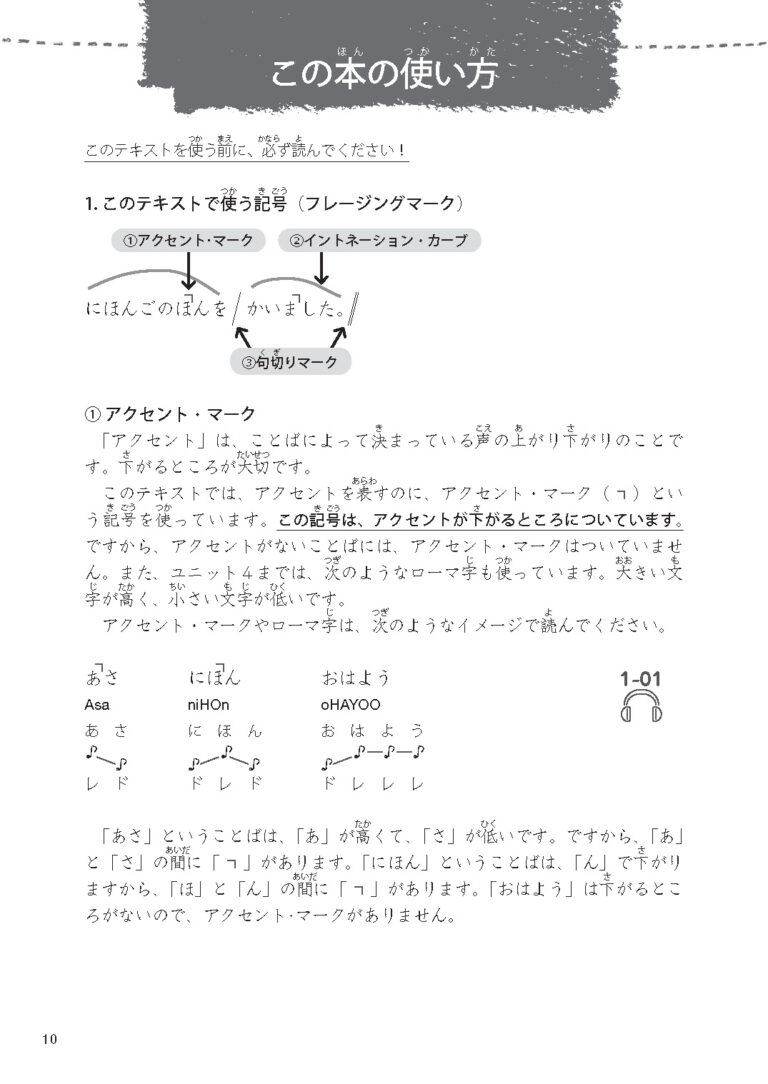 この本の使い方
このテキストを使う前に、必ず読んでください！
1. このテキストで使う記号（フレージングマーク）
①アクセント・マーク ②イントネーション・カーブ
にほ┐んごのほ┐んを／かいま┐した。//
③句切りマーク
① アクセント・マーク
「アクセント」は、ことばによって決まっている声の上がり下がりのことで
す。下がるところが大切です。
このテキストでは、アクセントを表すのに、アクセント・マーク（┐）とい
う記号を使っています。この記号は、アクセントが下がるところについています。
ですから、アクセントがないことばには、アクセント・マークはついていませ
ん。また、ユニット４までは、次のようなローマ字も使っています。大きい文
字が高く、小さい文字が低いです。
アクセント・マークやローマ字は、次のようなイメージで読んでください。
あ┐さ にほ┐ん おはよう 1-01
Asa niHOn oHAYOO
あ さ に ほ ん お は よ う
♪ ♪ ♪ ♪ ♪ ♪ ♪ ♪ ♪
レ ド ド レ ド ド レ レ レ
「あさ」ということばは、「あ」が高くて、「さ」が低いです。ですから、「あ」
と「さ」の間に「┐」があります。「にほん」ということばは、「ん」で下がり
ますから、「ほ」と「ん」の間に「┐」があります。「おはよう」は下がるとこ
ろがないので、アクセント・マークがありません。
10